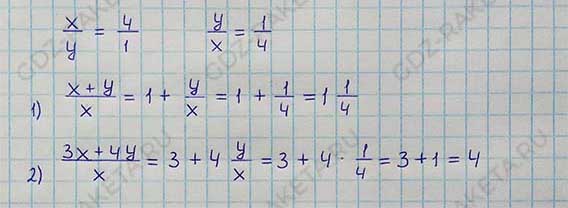 x/y = 4/1 y/x = 1/4
1) (x + y)/x = 1 + y/x = 1 + 1/4 = 1 1/4
2) (3x + 4y)/x = 3 + 4 y/x = 3 + 4 · 1/4 = 3 + 1 = 4
GDZ-RAKETA.RU